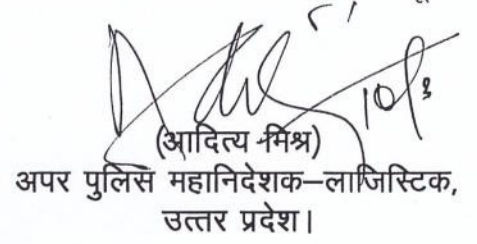 10/3
(आदित्य मिश्र)
अपर पुलिस महानिदेशक–लाजिस्टिक,
उत्तर प्रदेश।